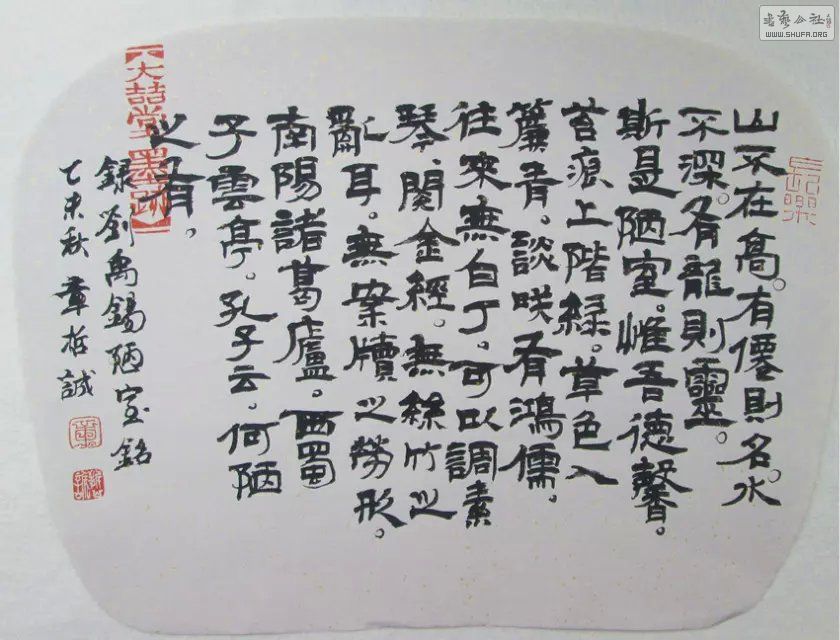 長樂
山不在高。有僊則名。水
不深。有龍則靈。
斯是陋室。惟吾德馨。
苔痕上階緑。草色入
簾青。談咲有鴻儒。
往來無白丁。可以調素
琴、閱金經。無絲竹之
亂耳。無案牘之勞形。
南陽諸葛廬。西蜀
子雲亭。孔子云。何陋
之有。
【大喆堂墨跡】
録劉禹錫陋室銘
乙未秋 章哲誠
章
书艺公社
WWW.SHUFA.ORG